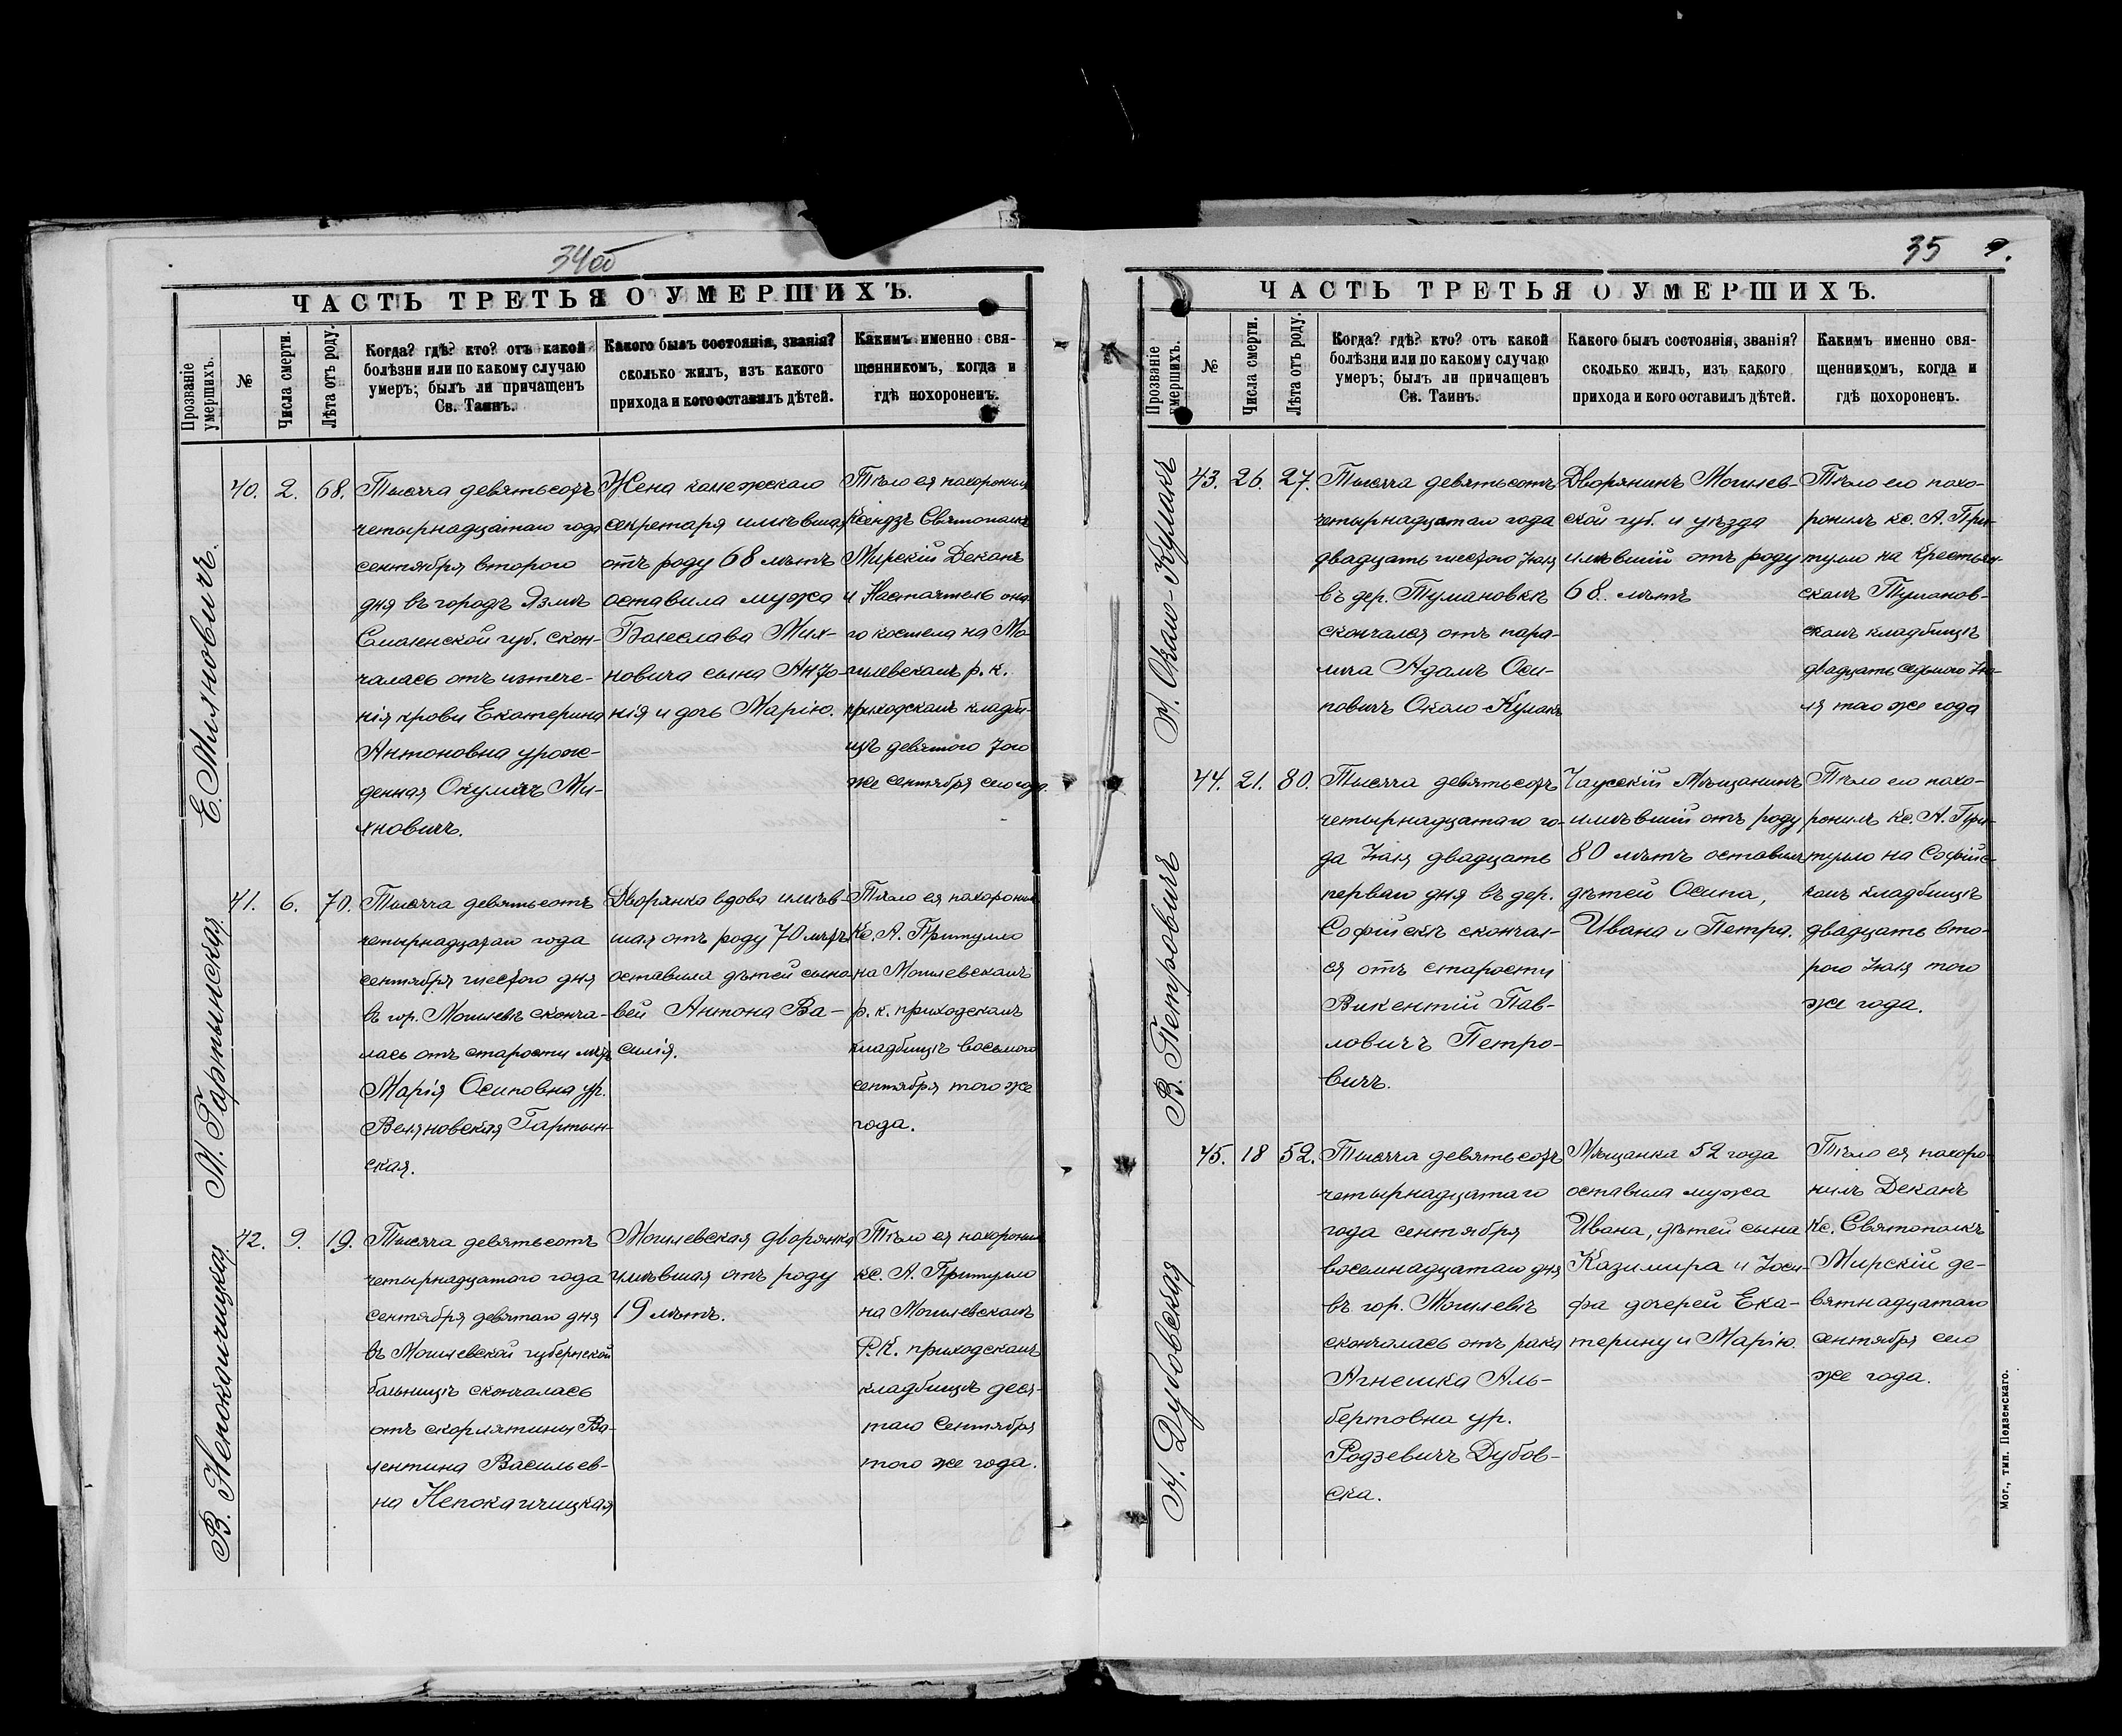 34об
ЧАСТЬ ТРЕТЬЯ О УМЕРШИХЪ.
Прозваніе умершихъ.
№
Числа смерти.
Лѣта отъ роду.
Когда? гдѣ? кто? отъ какой
болѣзни или по какому случаю
умеръ; былъ ли причащенъ
Св. Таинъ.
Какого былъ состоянія, званія?
сколько жилъ, изъ какого
прихода и кого оставилъ дѣтей.
Какимъ именно свя-
щенникомъ, когда и
гдѣ похороненъ.
Е. Михновичъ.
40. 2. 68.
Тысяча девятьсотъ
четырнадцатаго года
сентября второго
дня въ городѣ
Смоленской губ. скон-
чалась отъ истече-
нія крови Екатерина
Антоновна урож-
денная Окуличъ Ми-
хновичъ.
Жена коллежскаго
секретаря имѣвшая
отъ роду 68 лѣтъ
оставила мужа
Болеслава Мих-
новича сына Анто-
нія и дочь Марію.
Тѣло ея похоронилъ
Ксендзъ Святополкъ
Мирскій Деканъ
и Настоятель она-
го костела на Мо-
гилевскомъ р. к.
приходскомъ кладби-
щѣ девятого того
же сентября сего года.
М. Гартынская.
41. 6. 70.
Тысяча девятьсотъ
четырнадцатаго года
сентября шестого дня
въ гор. Могилевѣ сконча-
лась отъ старости лѣтъ
Марія Осиповна ур.
Веляновская Гартын-
ская.
Дворянка вдова имѣв-
шая отъ роду 70 лѣтъ
оставила дѣтей сыно-
вей Антона Ва-
силія.
Тѣло ея похоронилъ
Кс. А. Притулло
на Могилевскомъ
р. к. приходскомъ
кладбищѣ восьмого
сентября того же
года.
В. Непокойчицкая
42. 9. 19.
Тысяча девятьсотъ
четырнадцатого года
сентября девятаго дня
въ Могилевской губернской
больницѣ скончалась
отъ скорлятины Ва-
лентина Васильев-
на Непокайчицкая
Могилевская дворянка
имѣвшая отъ роду
19 лѣтъ.
Тѣло ея похоронилъ
кс. А. Притулло
на Могилевскомъ
Р. К. приходскомъ
кладбищѣ деся-
таго Сентября
того же года.
35
ЧАСТЬ ТРЕТЬЯ О УМЕРШИХЪ.
Прозваніе умершихъ.
№
Числа смерти.
Лѣта отъ роду.
Когда? гдѣ? кто? отъ какой
болѣзни или по какому случаю
умеръ; былъ ли причащенъ
Св. Таинъ.
Какого былъ состоянія, званія?
сколько жилъ, изъ какого
прихода и кого оставилъ дѣтей.
Какимъ именно свя-
щенникомъ, когда и
гдѣ похороненъ.
А. Около-Кулакъ
43. 26. 27.
Тысяча девятьсотъ
четырнадцатаго года
двадцать шестого Іюля
въ дер. Тумановкѣ
скончался отъ пара-
лича Адамъ Оси-
повичъ Около-Кулакъ
Дворянинъ Могилев-
ской губ. и уѣзда
имѣвшій отъ роду
68 лѣтъ
Тѣло его похо-
ронилъ кс. А. При-
тулло на Крестьян-
скомъ Туманов-
скомъ кладбищѣ
двадцать седьмого Ію-
ля того же года
В. Петровичъ
44. 21. 80.
Тысяча девятьсотъ
четырнадцатаго го-
да Іюля двадцать
перваго дня въ дер.
Софійскѣ скончал-
ся отъ старости
Викентій Пав-
ловичъ Петро-
вичъ.
Чаусскій Мѣщанинъ
имѣвшій отъ роду
80 лѣтъ оставилъ
дѣтей Осипа,
Ивана и Петра.
Тѣло его похо-
ронилъ Кс. А. При-
тулло на Софійс-
комъ кладбищѣ
двадцать вто-
рого Іюля того
же года.
А. Дубовская
45. 18 52.
Тысяча девятьсотъ
четырнадцатаго
года сентября
восемнадцатаго дня
въ гор. Могилевѣ
скончалась отъ рака
Агнешка Аль-
бертовна ур.
Родзевичъ Дубов-
ска.
Мѣщанка 52 года
оставила мужа
Ивана, дѣтей сына
Казимира и Іоси-
фа дочерей Ека-
терину и Марію.
Тѣло ея похоро-
нилъ Деканъ
Кс. Святополкъ
Мирскій де-
вятнадцатаго
сентября сего
же года.
Мог., тип. Подземскаго.